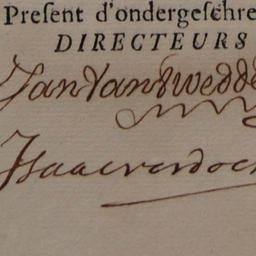 Present d'ondergeschre
DIRECTEURS
Jan Van Swedde
Isaac verdoch